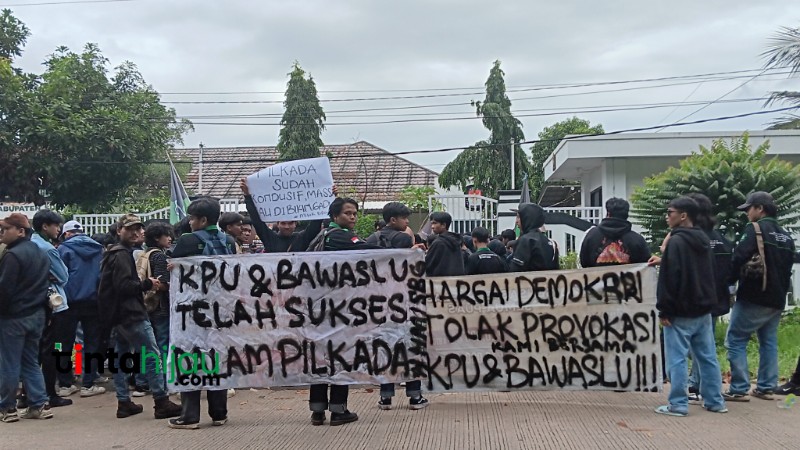 PILKADA
SUDAH
KONDUSIF, MASA
MAU DI BIKIN GADUH
KPU & BAWASLU
TELAH SUKSES
DALAM PILKADA
HARGAI DEMOKRASI
TOLAK PROVOKASI
KAMI BERSAMA
KPU & BAWASLU!!!
tintahijau
.com
KABUPATEN